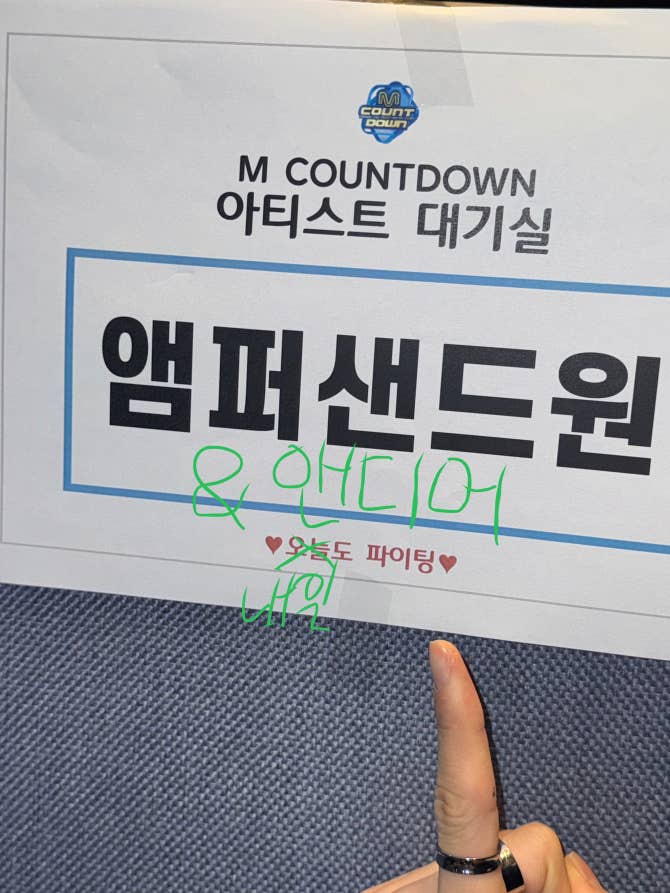 M
COUNT
DOWN
M COUNTDOWN
아티스트 대기실
앰퍼샌드원
& 앤디어
♥오늘도 파이팅♥
내일